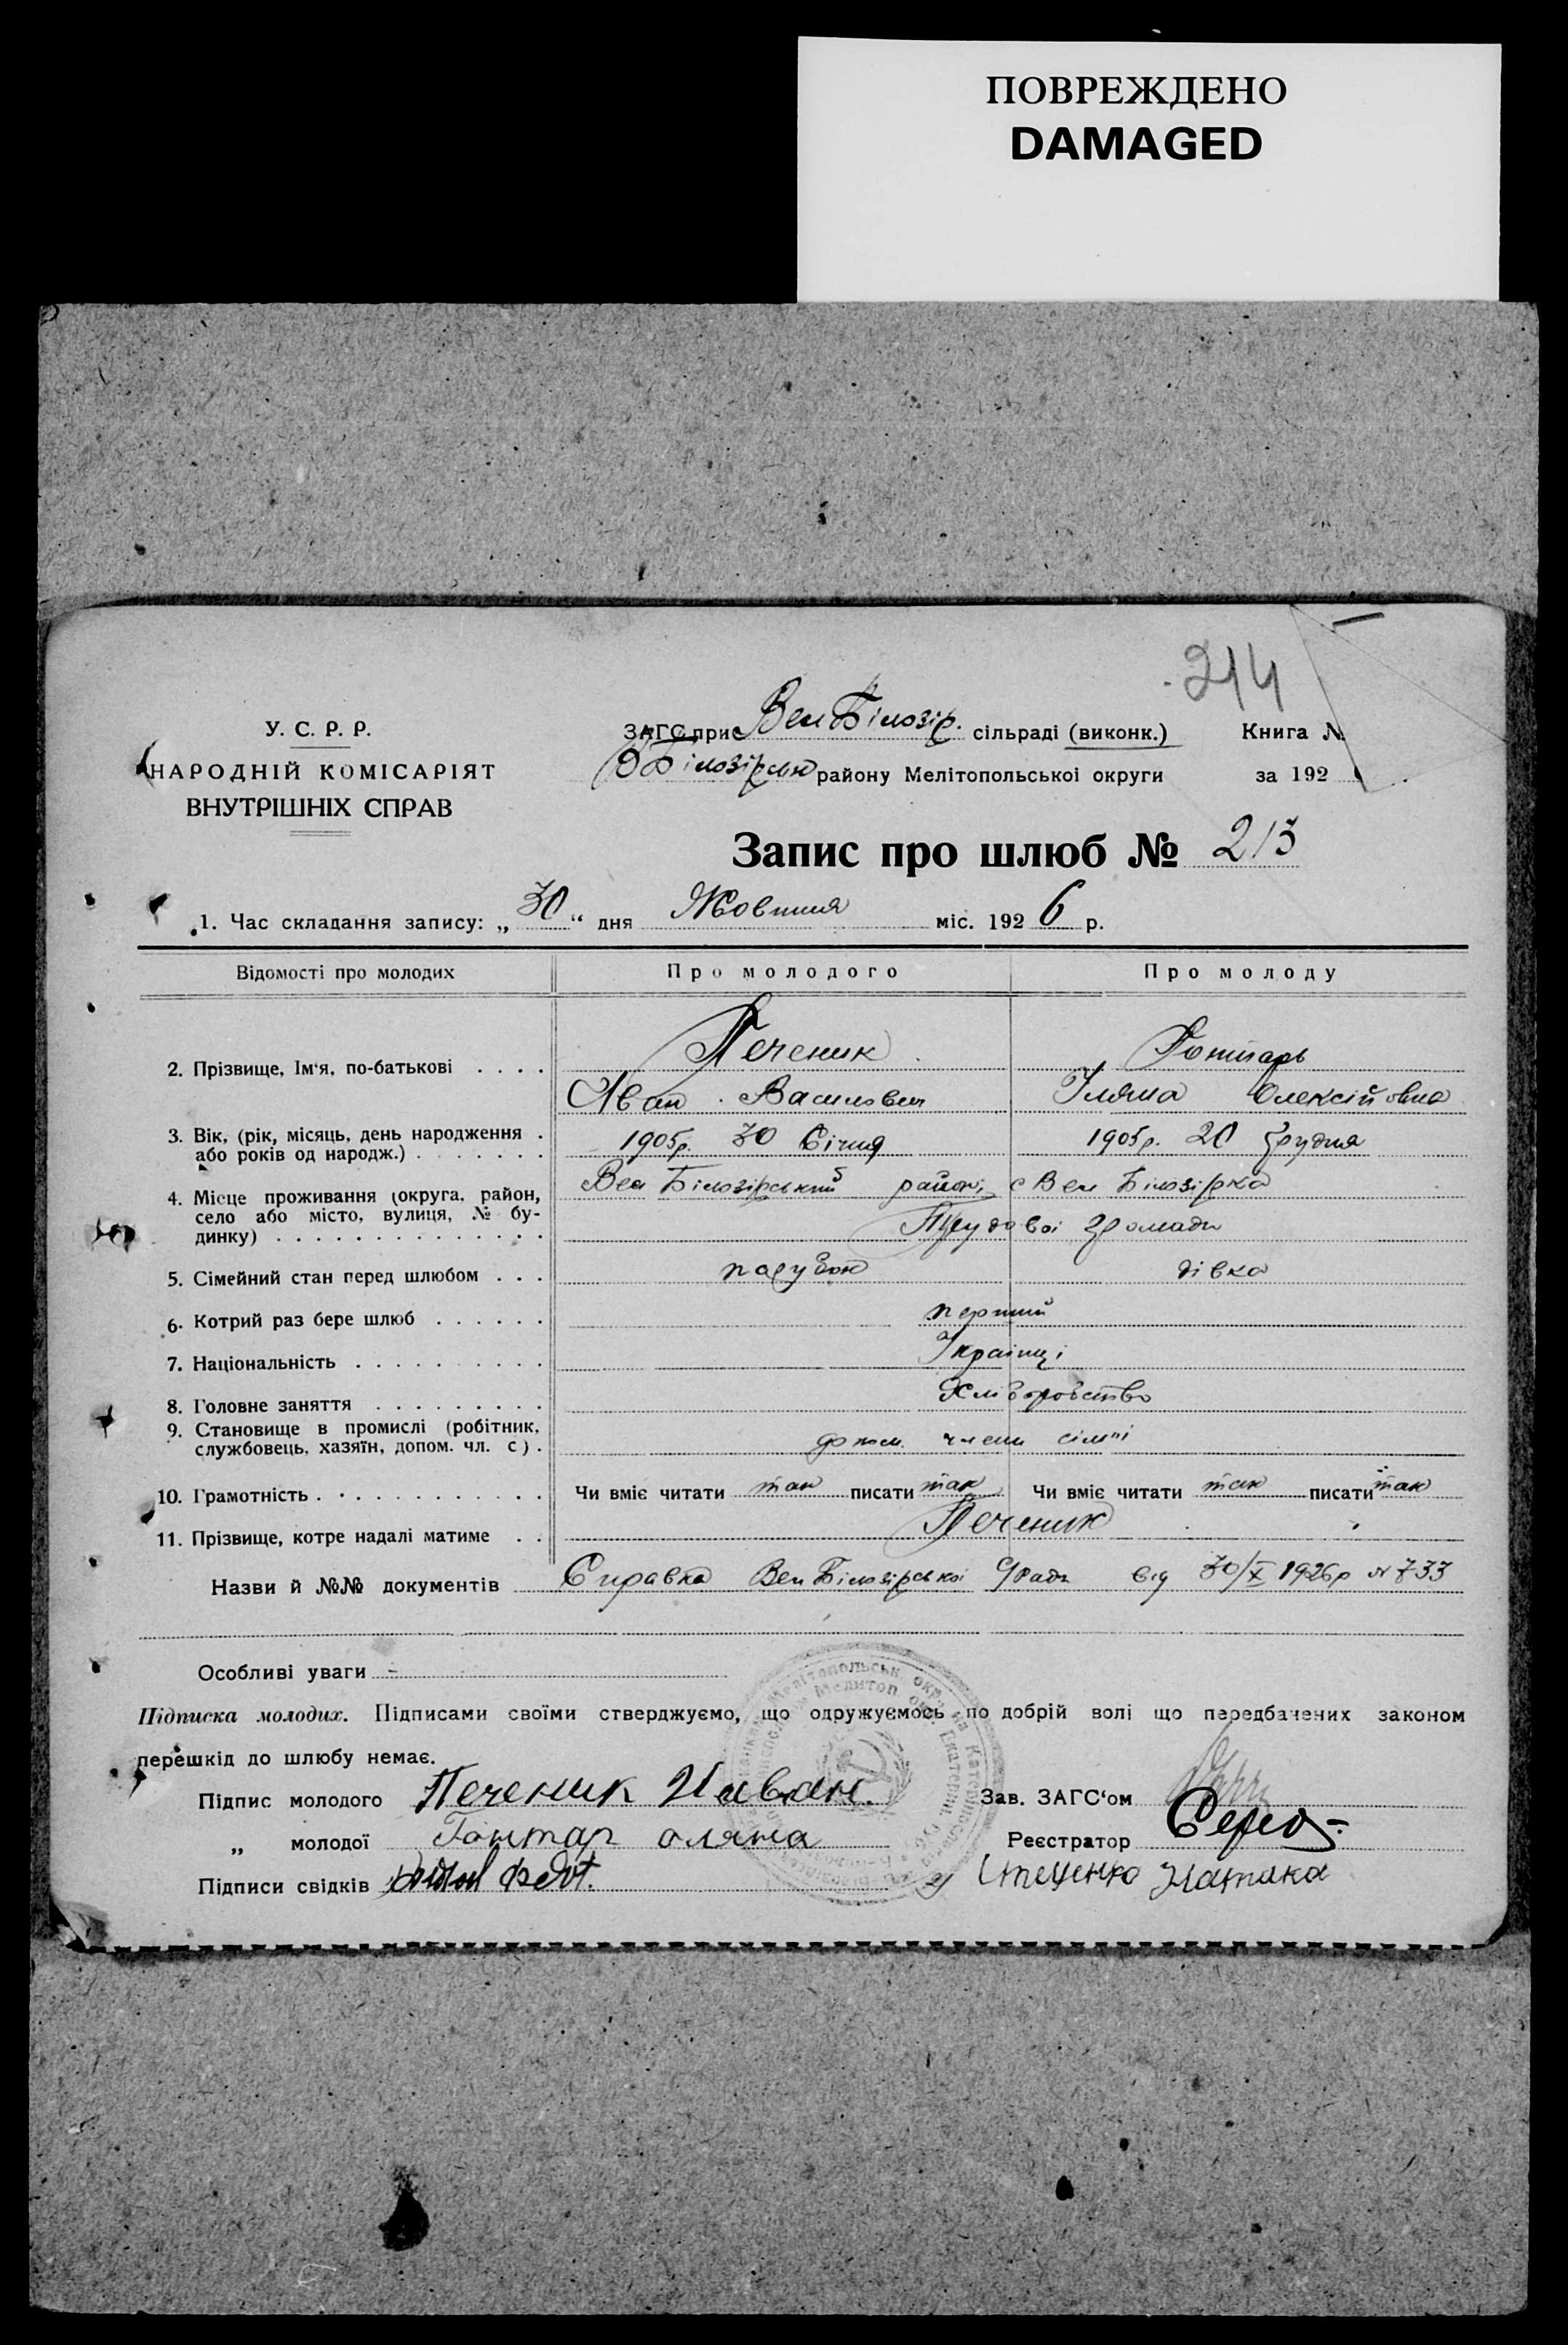 ПОВРЕЖДЕНО
DAMAGED
214
У. С. Р. Р.
НАРОДНІЙ КОМІСАРІЯТ
ВНУТРІШНІХ СПРАВ
ЗАГС при Вел Білозір. сільраді (виконк.) Книга №
району Мелітопольськоі округи за 192
Запис про шлюб № 213
1. Час складання запису: „ 30 “ дня Жовтня міс. 1926 р.
Відомості про молодих Про молодого Про молоду
2. Прізвище, Ім'я, по-батькові . . . . Печеник Гонтарь
Іван Василович Уляна Олексійовна
3. Вік, (рік, місяць, день народження . або років од народж.) . . . . . . . 1905р. 30 Січня 1905р. 20 Грудня
4. Місце проживання (округа, район, Вел Білозірський район, с Вел Білозірка
село або місто, вулиця, № бу-
динку) . . . . . . . . . . . . . . Трудовоі громади
5. Сімейний стан перед шлюбом . . . парубок дівка
6. Котрий раз бере шлюб . . . . . . перший
7. Національність . . . . . . . . . . Українці
8. Головне заняття . . . . . . . . . Хліборобство
9. Становище в промислі (робітник,
службовець, хазяїн, допом. чл. с) . допом. члени сімпі
10. Грамотність . . . . . . . . . . . . Чи вміє читати так писати так Чи вміє читати так писати так
11. Прізвище, котре надалі матиме . . Печеник
Назви й №№ документів Справка Вел Білозірськоі С/Ради від 30/X 1926р № 733
Особливі уваги -
Підписка молодих. Підписами своїми стверджуємо, що одружуємось по добрій волі що передбачених законом
перешкід до шлюбу немає.
Підпис молодого Печеник Иван. Зав. ЗАГС'ом
„ молодої Гонтар оляна Реєстратор
Підписи свідків Стеценко